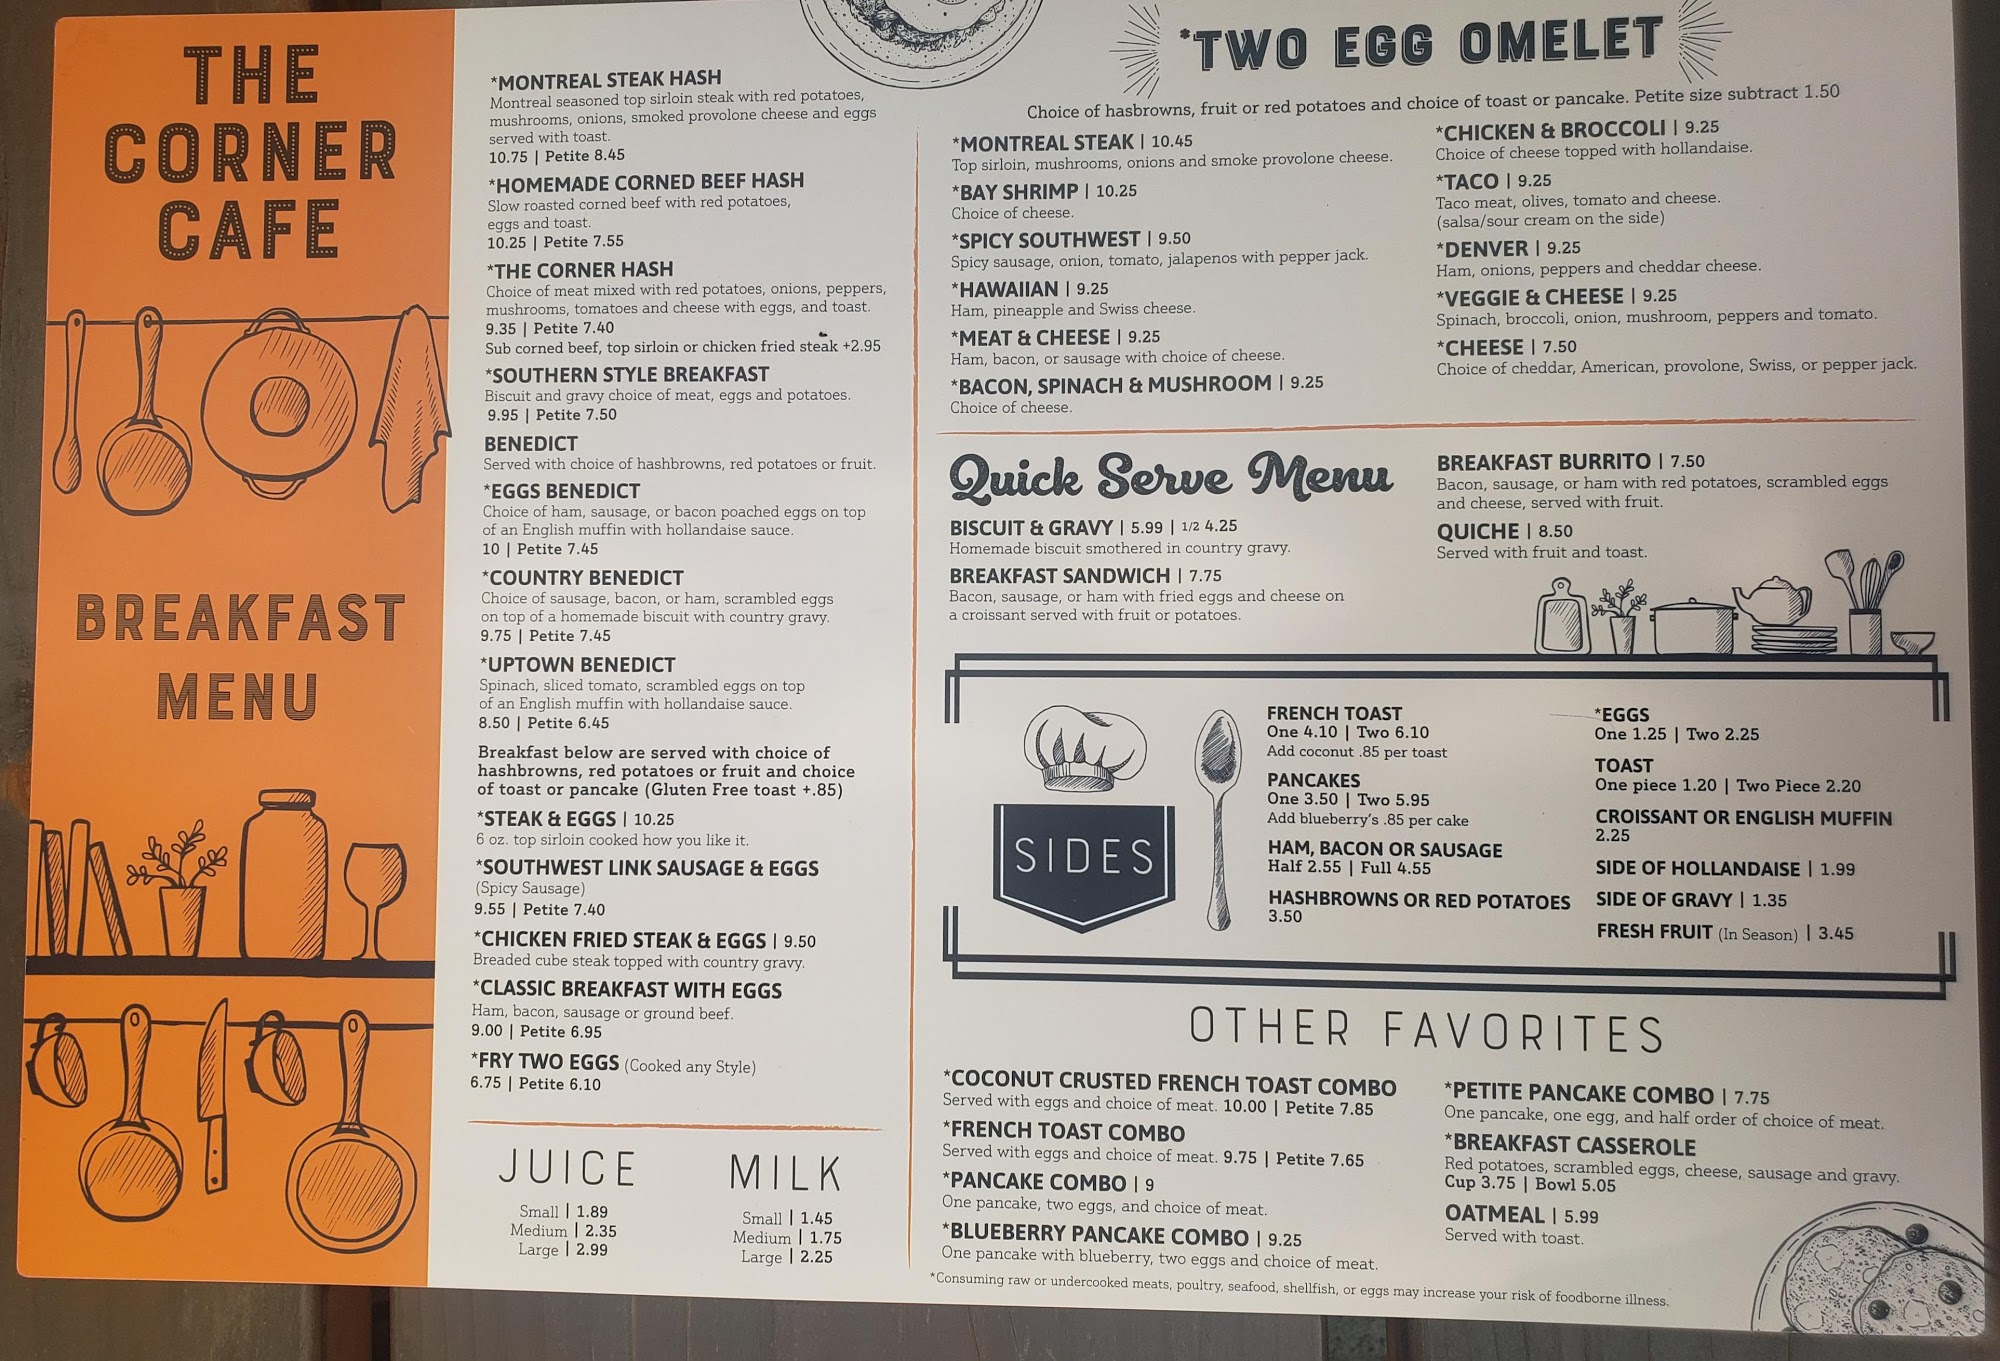 THE
CORNER
CAFE
BREAKFAST
MENU
*MONTREAL STEAK HASH
Montreal seasoned top sirloin steak with red potatoes,
mushrooms, onions, smoked provolone cheese and eggs
served with toast.
10.75 | Petite 8.45
*HOMEMADE CORNED BEEF HASH
Slow roasted corned beef with red potatoes,
eggs and toast.
10.25 | Petite 7.55
*THE CORNER HASH
Choice of meat mixed with red potatoes, onions, peppers,
mushrooms, tomatoes and cheese with eggs, and toast.
9.35 | Petite 7.40
Sub corned beef, top sirloin or chicken fried steak +2.95
*SOUTHERN STYLE BREAKFAST
Biscuit and gravy choice of meat, eggs and potatoes.
9.95 | Petite 7.50
BENEDICT
Served with choice of hashbrowns, red potatoes or fruit.
*EGGS BENEDICT
Choice of ham, sausage, or bacon poached eggs on top
of an English muffin with hollandaise sauce.
10 | Petite 7.45
*COUNTRY BENEDICT
Choice of sausage, bacon, or ham, scrambled eggs
on top of a homemade biscuit with country gravy.
9.75 | Petite 7.45
*UPTOWN BENEDICT
Spinach, sliced tomato, scrambled eggs on top
of an English muffin with hollandaise sauce.
8.50 | Petite 6.45
Breakfast below are served with choice of
hashbrowns, red potatoes or fruit and choice
of toast or pancake (Gluten Free toast +.85)
*STEAK & EGGS | 10.25
6 oz. top sirloin cooked how you like it.
*SOUTHWEST LINK SAUSAGE & EGGS
(Spicy Sausage)
9.55 | Petite 7.40
*CHICKEN FRIED STEAK & EGGS | 9.50
Breaded cube steak topped with country gravy.
*CLASSIC BREAKFAST WITH EGGS
Ham, bacon, sausage or ground beef.
9.00 | Petite 6.95
*FRY TWO EGGS (Cooked any Style)
6.75 | Petite 6.10
JUICE
Small | 1.89
Medium | 2.35
Large | 2.99
MILK
Small | 1.45
Medium | 1.75
Large | 2.25
*TWO EGG OMELET
Choice of hasbrowns, fruit or red potatoes and choice of toast or pancake. Petite size subtract 1.50
*MONTREAL STEAK | 10.45
Top sirloin, mushrooms, onions and smoke provolone cheese.
*BAY SHRIMP | 10.25
Choice of cheese.
*SPICY SOUTHWEST | 9.50
Spicy sausage, onion, tomato, jalapenos with pepper jack.
*HAWAIIAN | 9.25
Ham, pineapple and Swiss cheese.
*MEAT & CHEESE | 9.25
Ham, bacon, or sausage with choice of cheese.
*BACON, SPINACH & MUSHROOM | 9.25
Choice of cheese.
*CHICKEN & BROCCOLI | 9.25
Choice of cheese topped with hollandaise.
*TACO | 9.25
Taco meat, olives, tomato and cheese.
(salsa/sour cream on the side)
*DENVER | 9.25
Ham, onions, peppers and cheddar cheese.
*VEGGIE & CHEESE | 9.25
Spinach, broccoli, onion, mushroom, peppers and tomato.
*CHEESE | 7.50
Choice of cheddar, American, provolone, Swiss, or pepper jack.
Quick Serve Menu
BISCUIT & GRAVY | 5.99 | 1/2 4.25
Homemade biscuit smothered in country gravy.
BREAKFAST SANDWICH | 7.75
Bacon, sausage, or ham with fried eggs and cheese on
a croissant served with fruit or potatoes.
BREAKFAST BURRITO | 7.50
Bacon, sausage, or ham with red potatoes, scrambled eggs
and cheese, served with fruit.
QUICHE | 8.50
Served with fruit and toast.
SIDES
FRENCH TOAST
One 4.10 | Two 6.10
Add coconut .85 per toast
PANCAKES
One 3.50 | Two 5.95
Add blueberry's .85 per cake
HAM, BACON OR SAUSAGE
Half 2.55 | Full 4.55
HASHBROWNS OR RED POTATOES
3.50
*EGGS
One 1.25 | Two 2.25
TOAST
One piece 1.20 | Two Piece 2.20
CROISSANT OR ENGLISH MUFFIN
2.25
SIDE OF HOLLANDAISE | 1.99
SIDE OF GRAVY | 1.35
FRESH FRUIT (In Season) | 3.45
OTHER FAVORITES
*COCONUT CRUSTED FRENCH TOAST COMBO
Served with eggs and choice of meat. 10.00 | Petite 7.85
*FRENCH TOAST COMBO
Served with eggs and choice of meat. 9.75 | Petite 7.65
*PANCAKE COMBO | 9
One pancake, two eggs, and choice of meat.
*BLUEBERRY PANCAKE COMBO | 9.25
One pancake with blueberry, two eggs and choice of meat.
*PETITE PANCAKE COMBO | 7.75
One pancake, one egg, and half order of choice of meat.
*BREAKFAST CASSEROLE
Red potatoes, scrambled eggs, cheese, sausage and gravy.
Cup 3.75 | Bowl 5.05
OATMEAL | 5.99
Served with toast.
*Consuming raw or undercooked meats, poultry, seafood, shellfish, or eggs may increase your risk of foodborne illness.